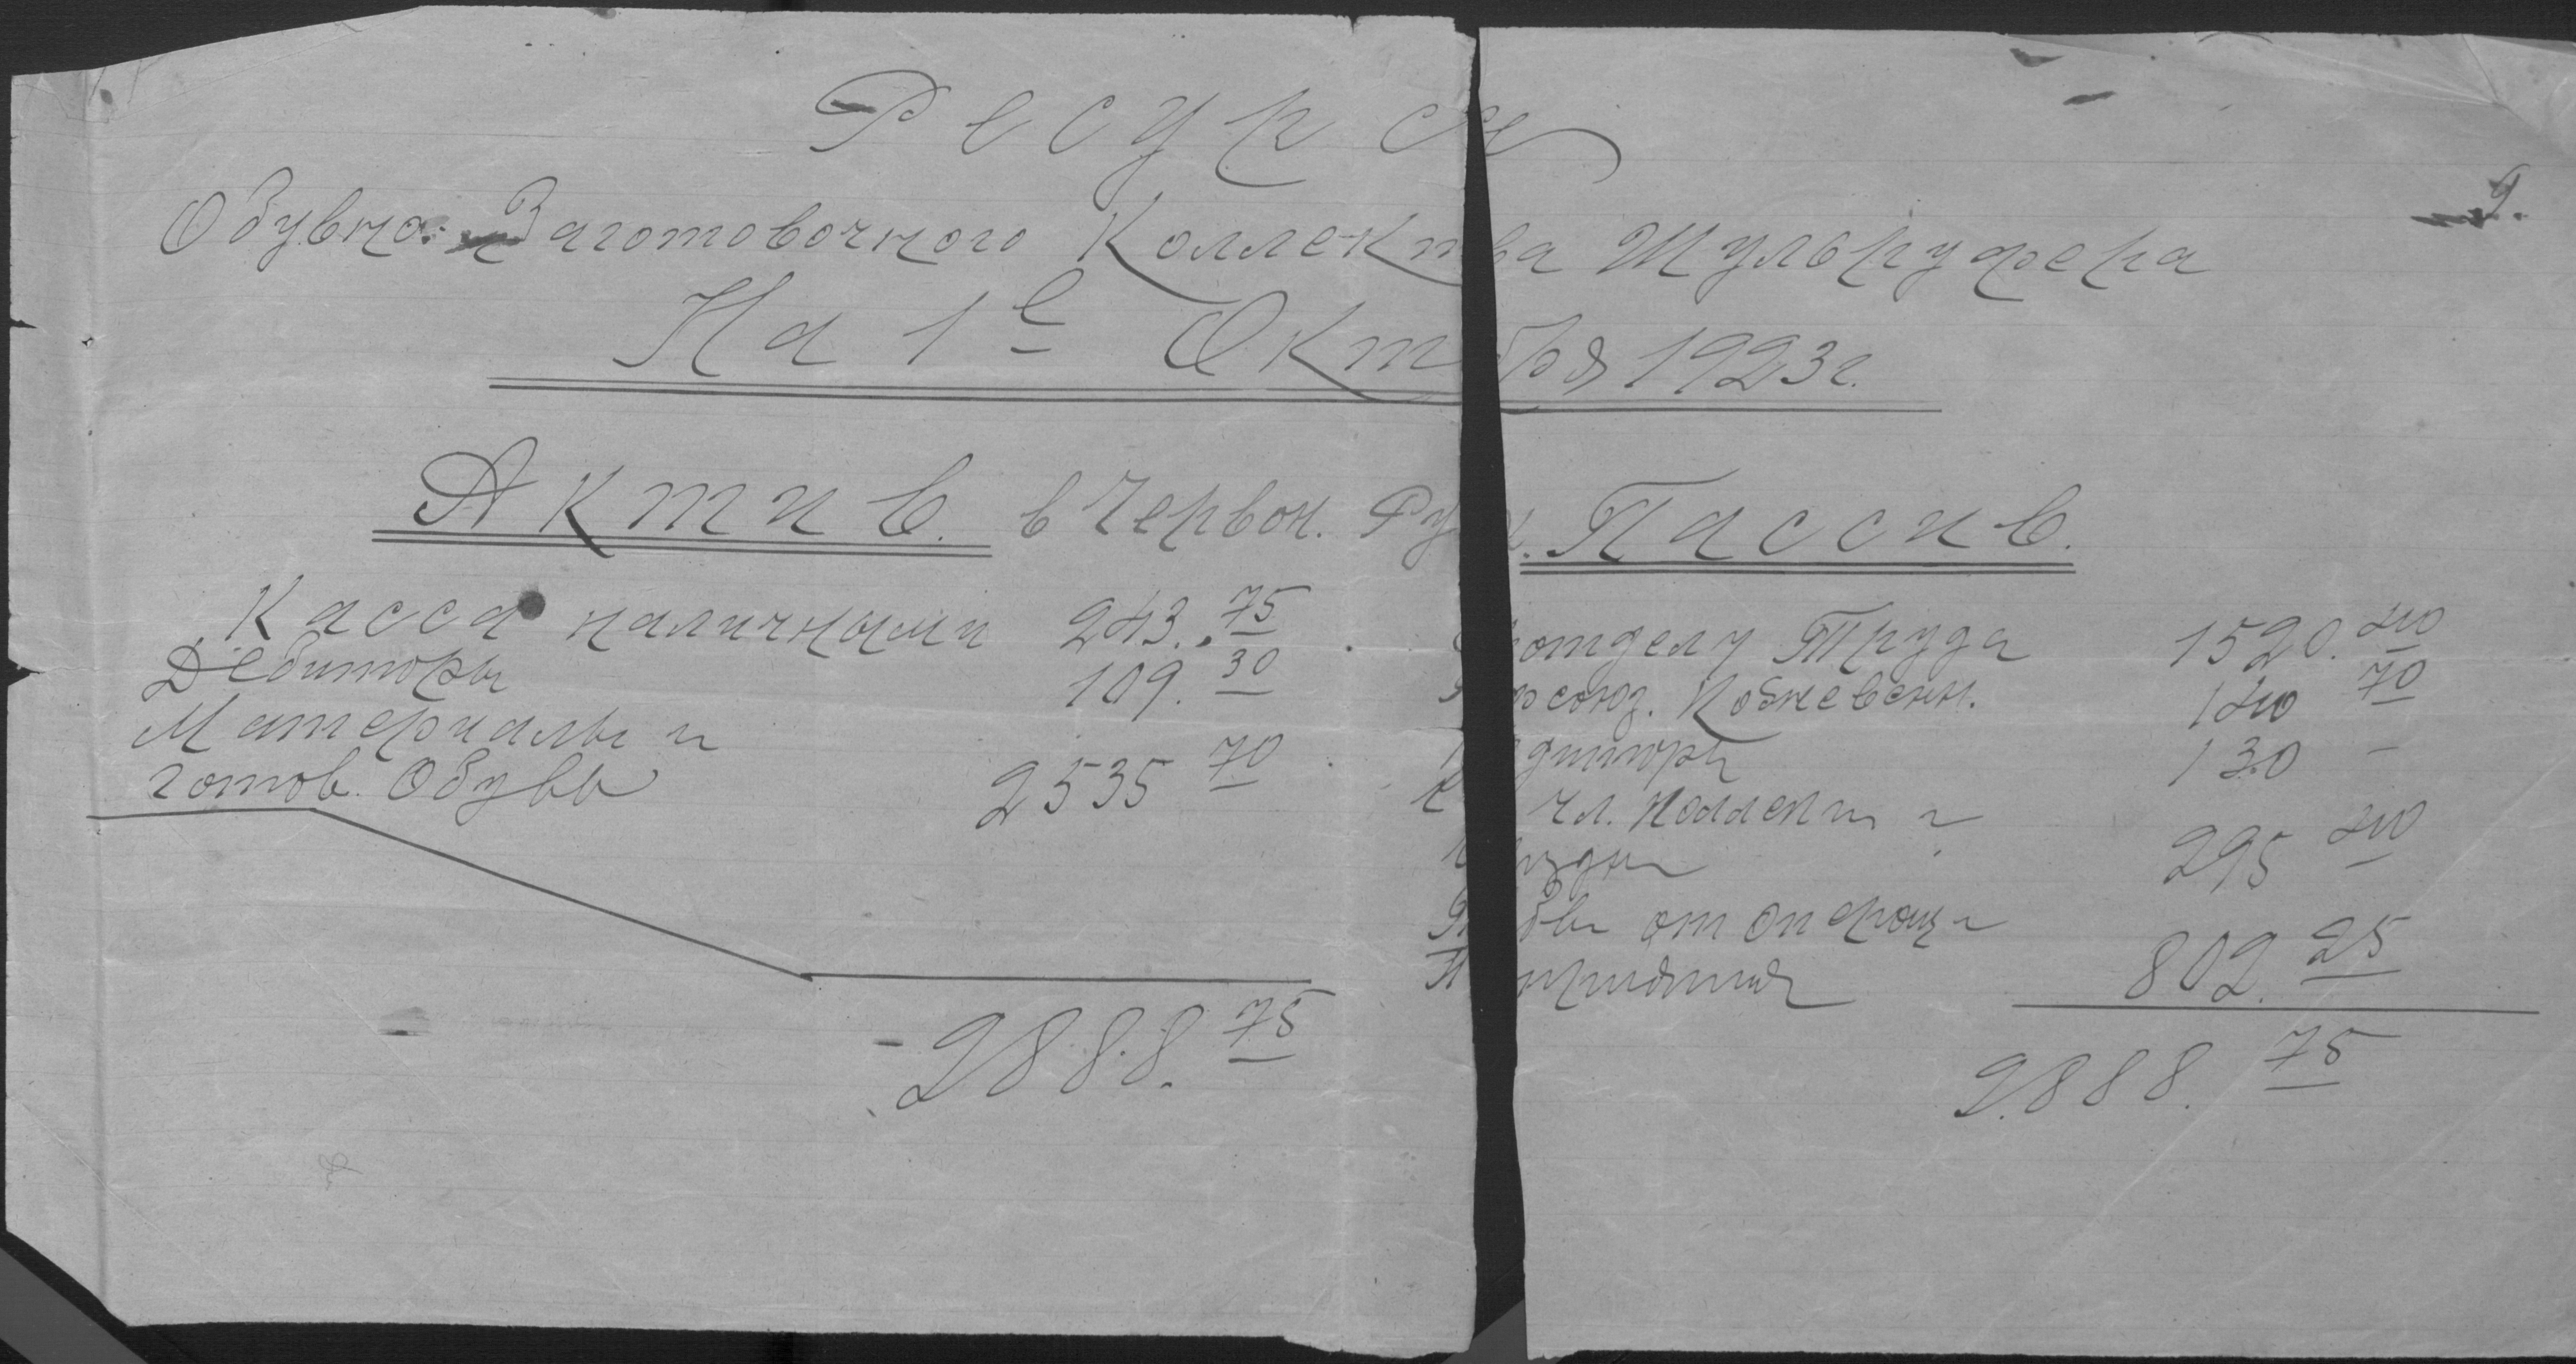 Ресурсы
9.
Обувно-Заготовочного Коллектива Шульруфера
На 1е Октября 1923г.
Актив. в Червон. Руб. Пассив.
Касса наличными 243.75
Дебиторы 109.30
Материалы и
готов. Обувь 2535 70
2888.75
отделу Труда 1520.40
союз. Кожевенн. 140 70
диторы 130 –
чл. Коллект и
295 40
от операц и
802.25
2888.75